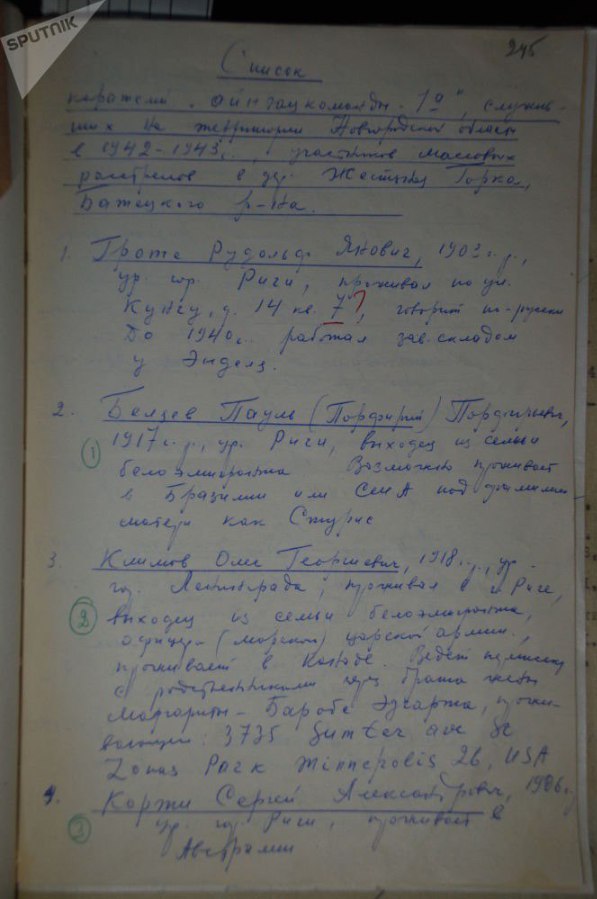 SPUTNIK
245
Список
карателей „айнзацкоманды - 1а", служив-
ших на территории Новгородской области
в 1942-1943г., участников массовых
расстрелов в дер. Жестяная Горка,
Батецкого р-на.
1. Гроте Рудольф Янович, 1903 г.р.,
ур. гор. Риги, проживал по ул.
д. 14 кв. 7, говорит по-русски
До 1940г. работал зав. складом
у
2. Белзев Пауль (Порфирий) Порфирьевич,
1 1917 г.р., ур. Риги, выходец из семьи
белоэмигранта Возможно проживает
в Бразилии или США под фамилией
матери как Стурис
3. Климов Олег Георгиевич, 1918 г.р., ур.
гор. Ленинграда, проживал в г. Риге,
2 выходец из семьи белоэмигранта,
офицера (морской) царской армии.,
проживает в Канаде. Ведет переписку
с родственниками через брата жены
Маргариты - Эдгарта, прожи-
вающий: 3735 Sumter ave So
Park Minnepolis 26, USA
4. Коржи Сергей Александрович, 1906 г.
3 ур. гор. Риги, проживает в
Австралии